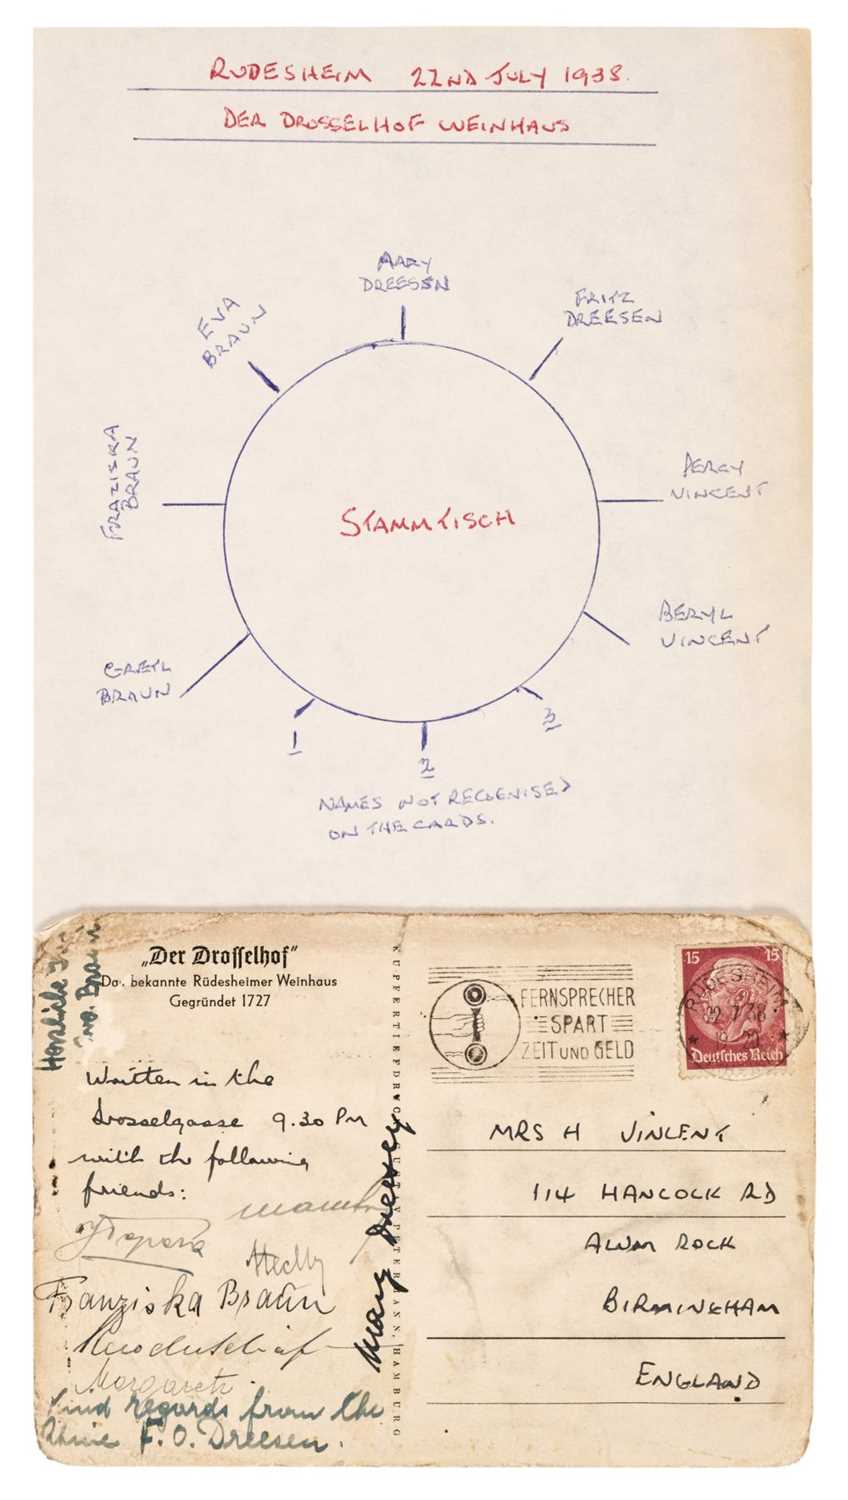 RUDESHEIM 22ND JULY 1938.
DER DROSSELHOF WEINHAUS
MARY
DREESEN
EVA
BRAUN
FRITZ
DREESEN
FRAZISKA
BRAUN
PERCY
VINCENT
STAMMTISCH
BERYL
VINCENT
GRETL
BRAUN
1
2
3
NAMES NOT RECOGNISED
ON THE CARDS.
Herzliche
Eva Braun
„Der Drosselhof“
Das bekannte Rüdesheimer Weinhaus
Gegründet 1727
Written in the
Drosselgasse 9.30 PM
with the following
friends:
Franziska Braun
Margarete
Kind regards from the
Rhine F. O. Dreesen.
Mary Dreesen
KUPFERTIEFDRUCK GUSTAV PETERMANN, HAMBURG
FERNSPRECHER
SPART
ZEIT UND GELD
15 15
RÜDESHEIM
22.7.38
Deutsches Reich
MRS H VINCENT
114 HANCOCK RD
ALUM ROCK
BIRMINGHAM
ENGLAND